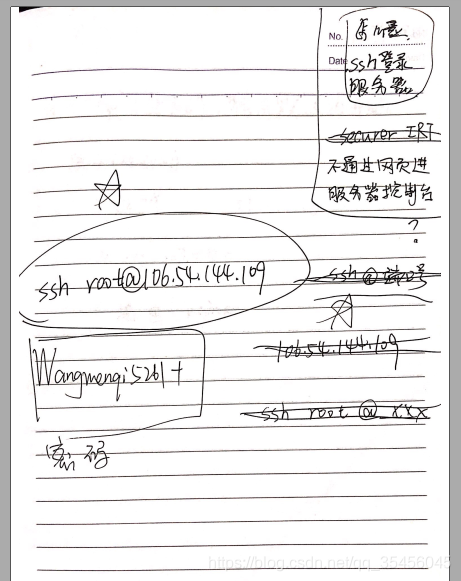 No.
Date
ssh登录
服务器
securer IRT
不通过网页进
服务器控制台
?
ssh root@106.54.144.109
ssh @端口号
106.54.144.109
Wangmengi5261+
ssh root @ xxx
密码
https://blog.csdn.net/qq_35456045